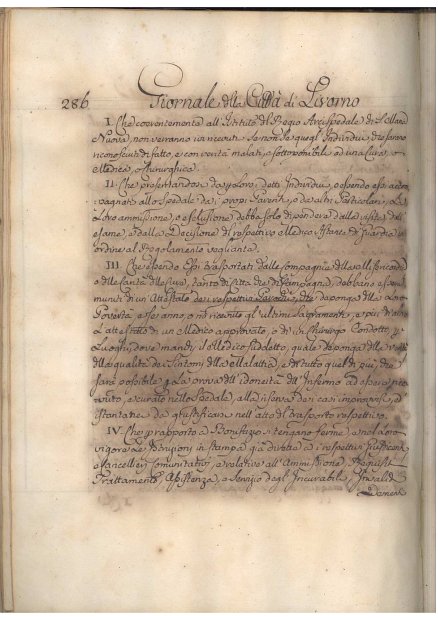 286 Giornale della Città di Livorno
I. Che coerentemente all'Istituto del Regio Arcispedale di S. Maria
Nuova, non verranno ivi ricevuti se non se quegl'Individui, che saranno
riconosciuti di fatto, e con verità malati, e sottoponibili ad una Cura, o
Medica, o Chirurgica.
II. Che presentandosi da per loro detti Individui, o essendo essi accom
pagnati allo Spedale da' propri Parenti, o da altri Particolari, la
Loro ammissione, o esclusione debba solo dipendere dalla visita, ed
esame, e dalla Decisione di respettivo Medico Astante di Guardia in
ordine al Regolamento vegliante.
III. Che essendo Essi trasportati dalle Compagnie della Misericordia
e della Carità della sua, tanto di Città che di Campagna, debbano essere
muniti di un Attestato de' respettivi Parochi, che deponga della Loro
Povertà, e se anno, o nò ricevuto gl'ultimi Sagramenti, e più d'altro
L'attestato di un Medico approvato, o di un Chirurgo Condotto, per
Luoghi, dove manchi il Medico suddetto, quale deponga della
della qualità dei Sintomi della Malattia, e di tutto quel di più, che
sarà possibile per La prova dell'idoneità dell'Infermo ad essere rice
vuto, e curato nello Spedale, alla riserva dei casi improvvisi, ed
istantanei da giustificarsi nell'atto del trasporto respettivo.
IV. Che per rapporto a' si tengano ferme, e nel Loro
vigore le Istruzioni in stampa già dirette a' respettivi Giusdicenti
e Cancellieri Comunitativi, e relative all'Ammissione,
Trattamento, Assistenza, e Servizio degl'Incurabili, Invalidi
Dementi